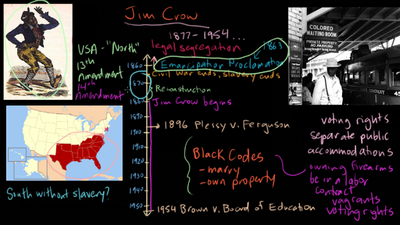 Jim Crow
1877-1954...
legal segregation
1863
Emancipation Proclamation
USA - "North"
13th
Amendment
14th
Amendment
1860
Civil war ends, slavery ends
1870
Reconstruction
1880
Jim Crow begins
1890
1896 Plessy v. Ferguson
1900
1910
1920
1930
1940
1950
1954 Brown v. Board of Education
Black Codes
- marry
- own property
South without slavery?
COLORED
WAITING ROOM
PRIVATE PROPERTY
NO PARKING
voting rights
separate public
accommodations
owning firearms
be in a labor
contract
vagrants
voting rights